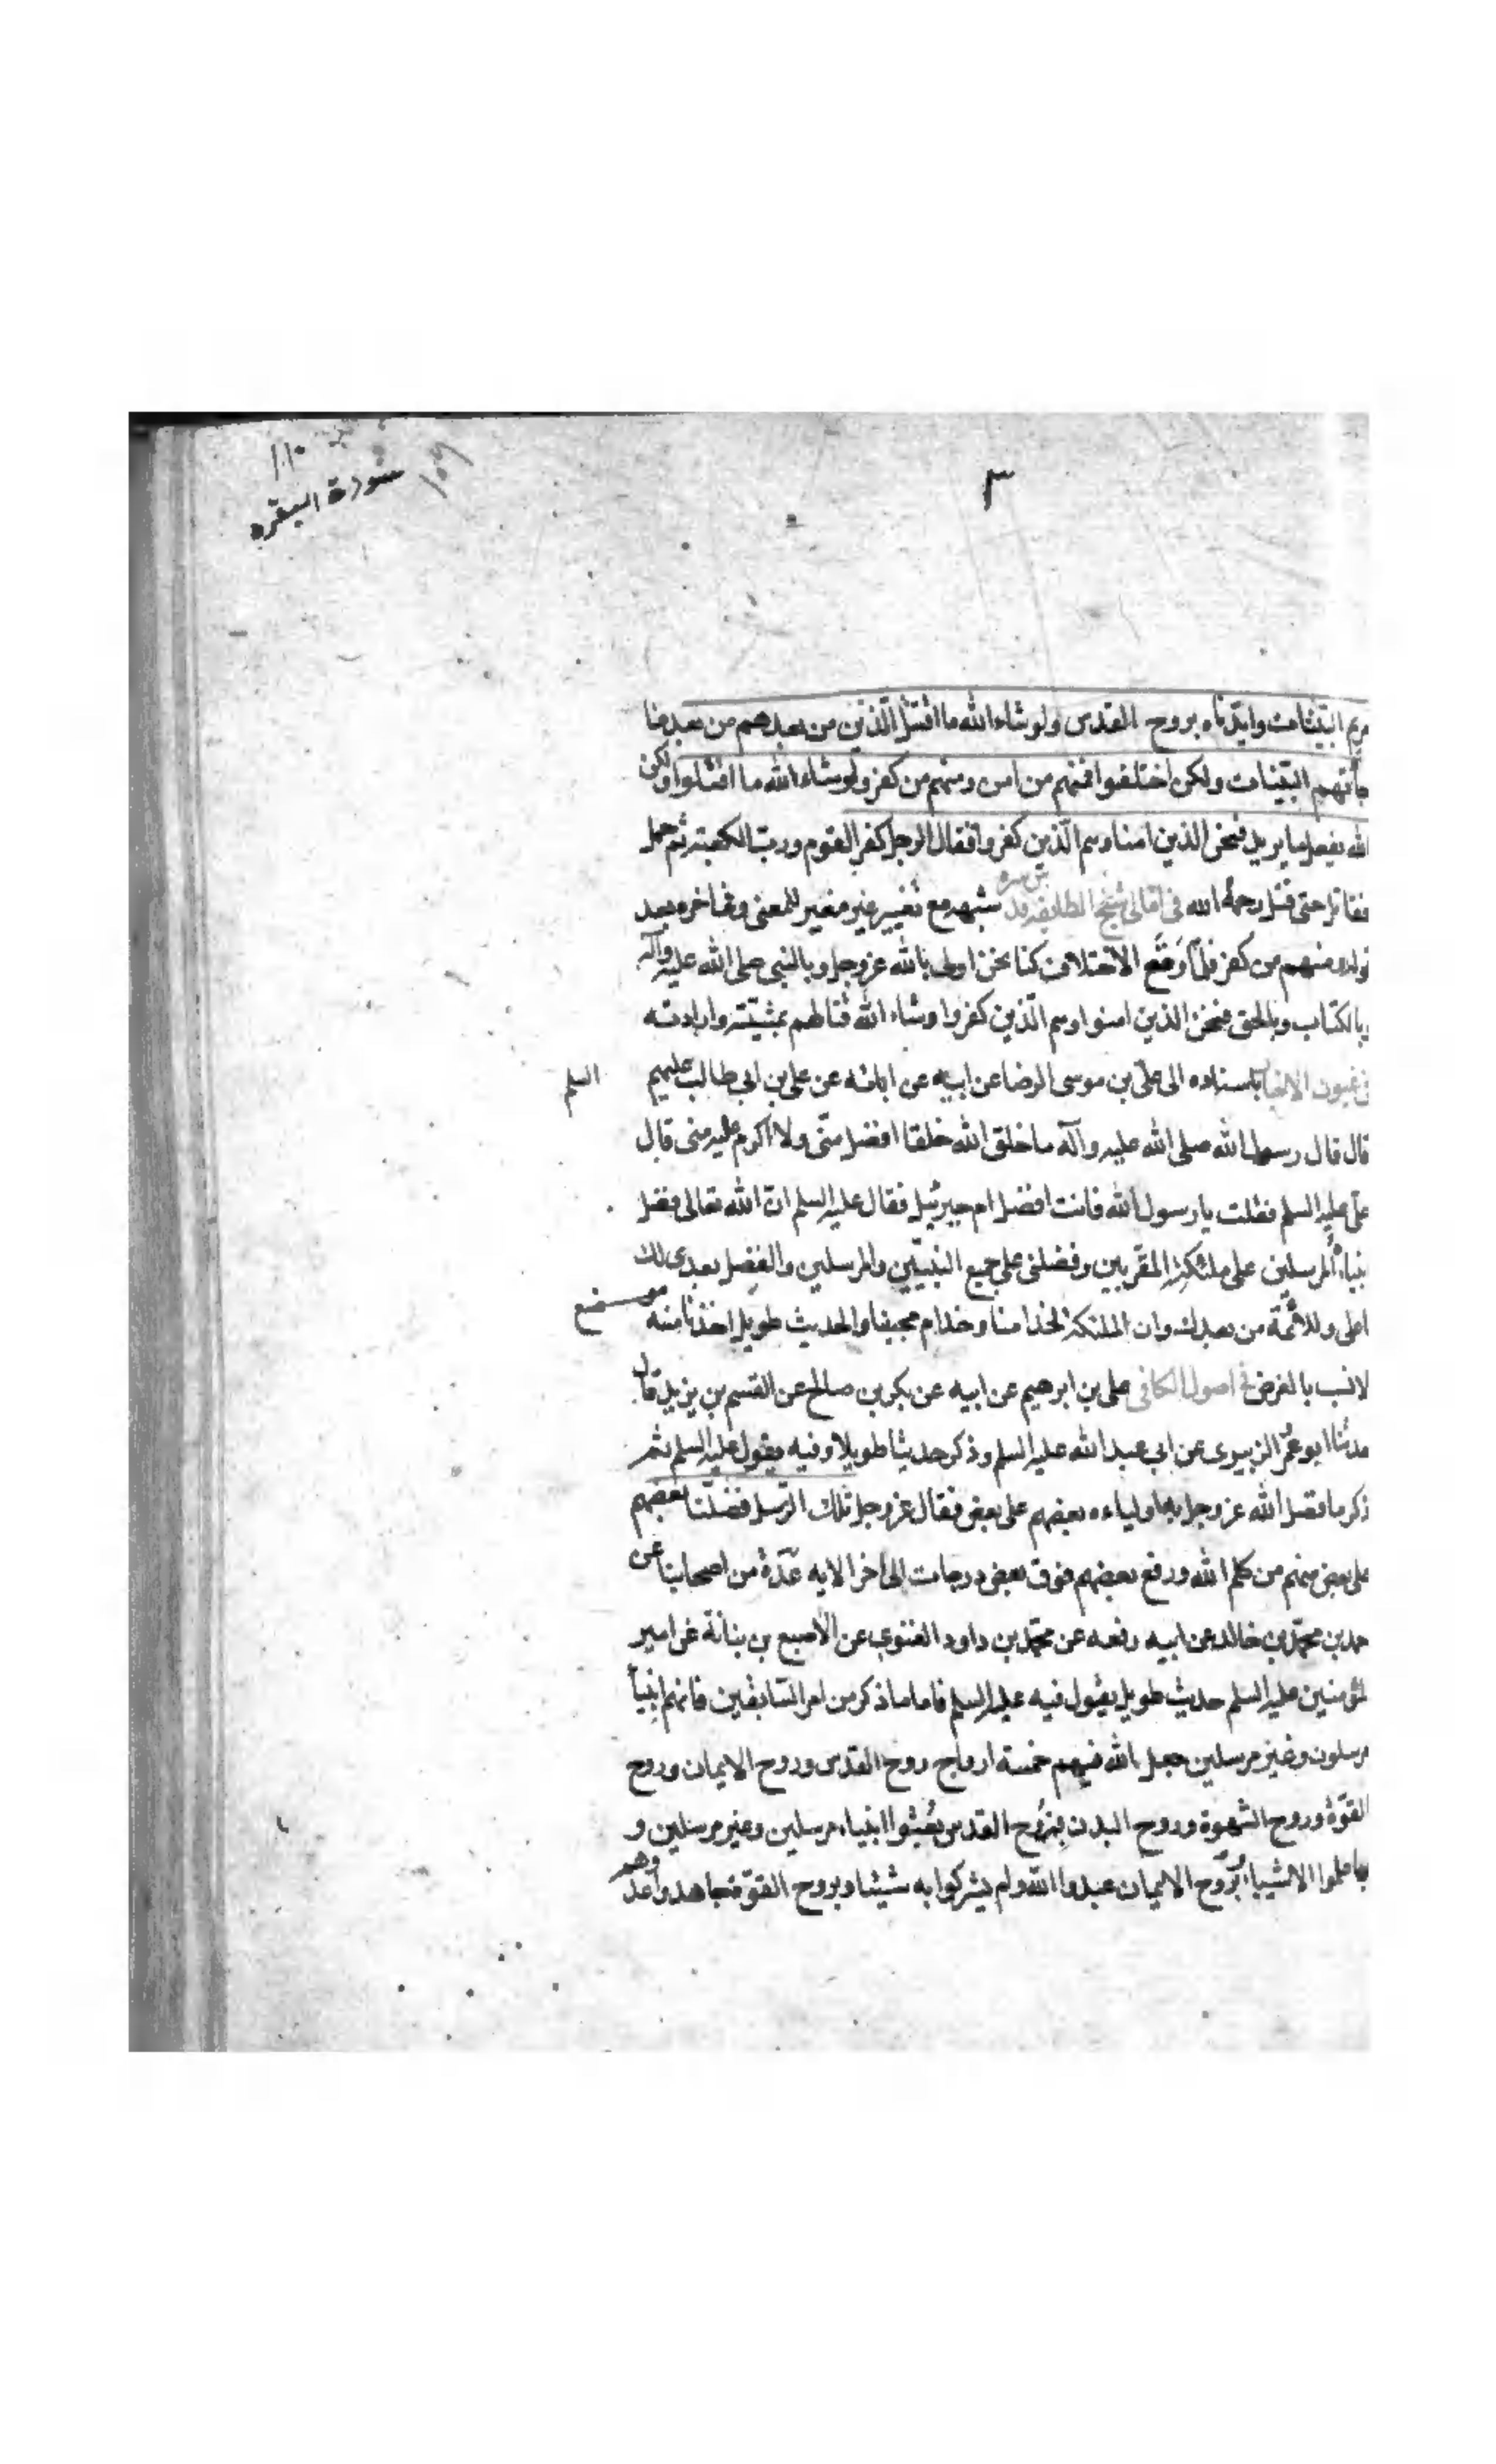 ١١٠
١٠٩
سورة البقره
٣
مريم البيّنات وايّدناه بروح القدس ولو شاء الله ما اقتتل الّذين من بعدهم من بعد ما
جآءتهم البيّنات ولكن اختلفوا فمنهم من امن ومنهم من كفر ولو شاء الله ما اقتتلوا ولكن
الله يفعل ما يريد فنحن الذين امنا وهم الّذين كفروا فقال الرجل كفر القوم وربّ الكعبة ثم حمل
فقاتل حتى قتل رحمه الله في امالى شيخ الطايفه قدس سره شبهه مع تغيير غير مغير للمعنى وفى اخره بعد
قوله ومنهم من كفر فلمّا وقع الاختلاف كنا نحن اولى بالله عز وجل وبالنبى صلى الله عليه وآله
وبالكتاب وبالحق فنحن الذين امنوا وهم الّذين كفروا وشاء الله قتالهم بمشيّته وارادته
في عيون الاخبار باسناده الى علىّ بن موسى الرضا عن ابيه عن ابائه عن على بن ابى طالب عليهم السلم
قال قال رسول الله صلى الله عليه وآله ما خلق الله خلقا افضل منّى ولا اكرم عليه منى قال
علىّ عليه السلم فقلت يا رسول الله فانت افضل ام جبرئيل فقال عليه السلم انّ الله تعالى فضل
انبياءه المرسلين على ملئكته المقربين وفضلنى على جميع النبيّين والمرسلين والفضل بعدى لك
يا على وللائمّة من بعدك وان الملئكة لخدامنا وخدام محبينا والحديث طويل اخذنا منه موضع
الانسب بالغرض في اصول الكافى على بن ابرهيم عن ابيه عن بكر بن صالح عن القسم بن يزيد قال
حدثنا ابو عمرو الزبيرى عن ابى عبد الله عليه السلم وذكر حديثا طويلا وفيه يقول عليه السلم ثم
ذكر ما فضل الله عز وجل به اولياءه بعضهم على بعض فقال عز وجل تلك الرّسل فضّلنا بعضهم
على بعض منهم من كلم الله ورفع بعضهم فوق بعض درجات الى اخر الايه عدّة من اصحابنا عن
احمد بن محمّد بن خالد عن ابيه رفعه عن محمّد بن داود الغنوى عن الاصبع بن بنانة عن امير
المؤمنين عليه السلم حديث طويل يقول فيه عليه السلم فاما ما ذكر من امر السّابقين فانهم انبيآء
مرسلون وغير مرسلين جعل الله فيهم خمسة ارواح روح القدس وروح الايمان وروح
القوّة وروح الشهوة وروح البدن فبروح القدس بعثوا انبياء مرسلين وغير مرسلين و
بها علموا الاشياء وبروح الايمان عبدوا الله ولم يشركوا به شيئا وبروح القوة جاهدوا عدوهم